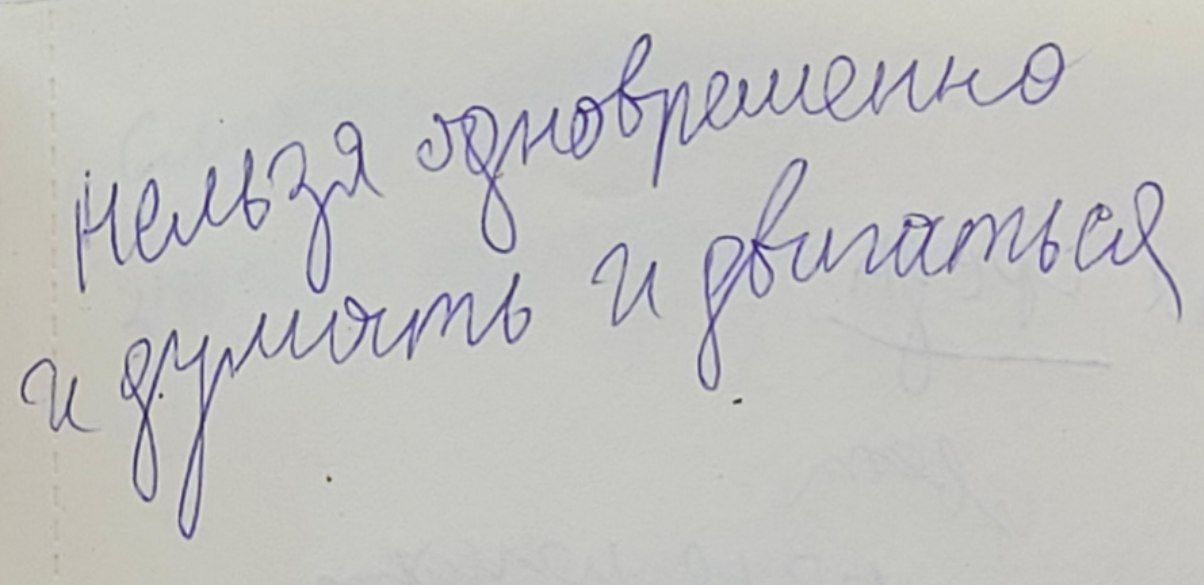 нельзя одновременно
и думать и двигаться